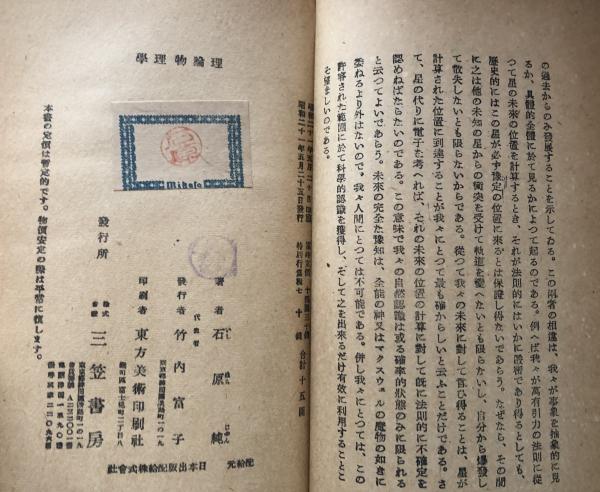 の過去からのみ發展することを示してゐる。この兩者の相違は、我々が事象を抽象的に見
るか、具體的全體に於て見るかによつて起るのである。例へば我々が萬有引力の法則に從
つて星の未來の位置を計算するとき、それが法則的にはいかに嚴密であり得るとしても、
歷史的にはこの星が必ず豫定の位置に來るとは保證し得ないであらう。なぜなら、その間
に之は他の未知の星からの衝突を受けて軌道を變へたいとも限らないし、自分から爆發し
て散失しないとも限らないからである。從つて我々の未來に對して言ひ得ることは、星が
計算された位置に到達することが我々にとつて最も確からしいと云ふことだけである。さ
て、星の代りに電子を考へれば、それの未來の位置の計算に對して既に法則的に不確定を
認めねばならないのである。この意味で我々の自然認識は或る確率的狀態のみに限られる
と云つてよいであらう。未來の完全な豫知は、全能の神又はマクスウェルの魔物の如きに
委ねるより外はないので、我々人間にとつては不可能である。併し我々にとつては、この
許容された範圍に於て科學的認識を獲得し、そして之を出來るだけ有效に利用することこ
そ望ましいのである。
理論物理學
Mikasa
昭和二十一年五月二十五日發行
合計十五圓
著者 石原純
いし はら じゅん
代表者
發行者 竹内富子
印刷者 東方美術印刷社
麴町區富士見町二丁目八
發行所
株式會社 三笠書房
配給元 日本出版配給株式會社
本書の定價は暫定的です。物價安定の際は平常に復します。